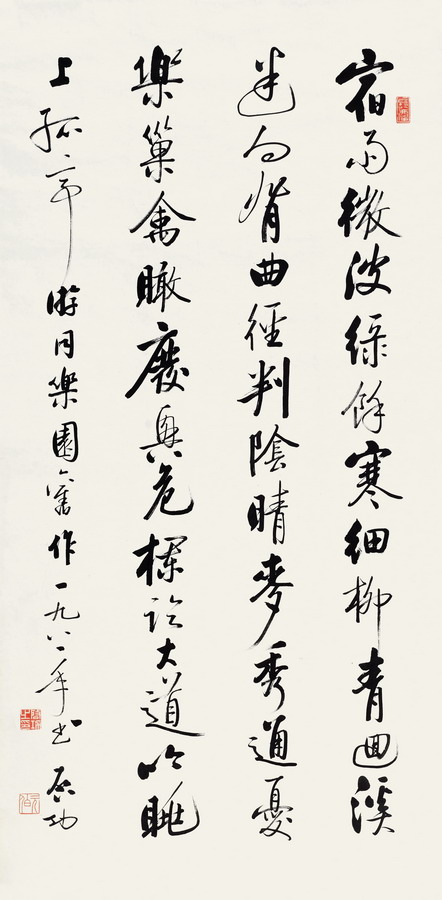 宿雨微波綠餘寒細柳青迴溪
迷向背曲徑判陰晴麥秀通憂
樂巢禽瞰廢興危欄大道吟眺
上孤亭 游同樂園舊作一九八一年書 启功